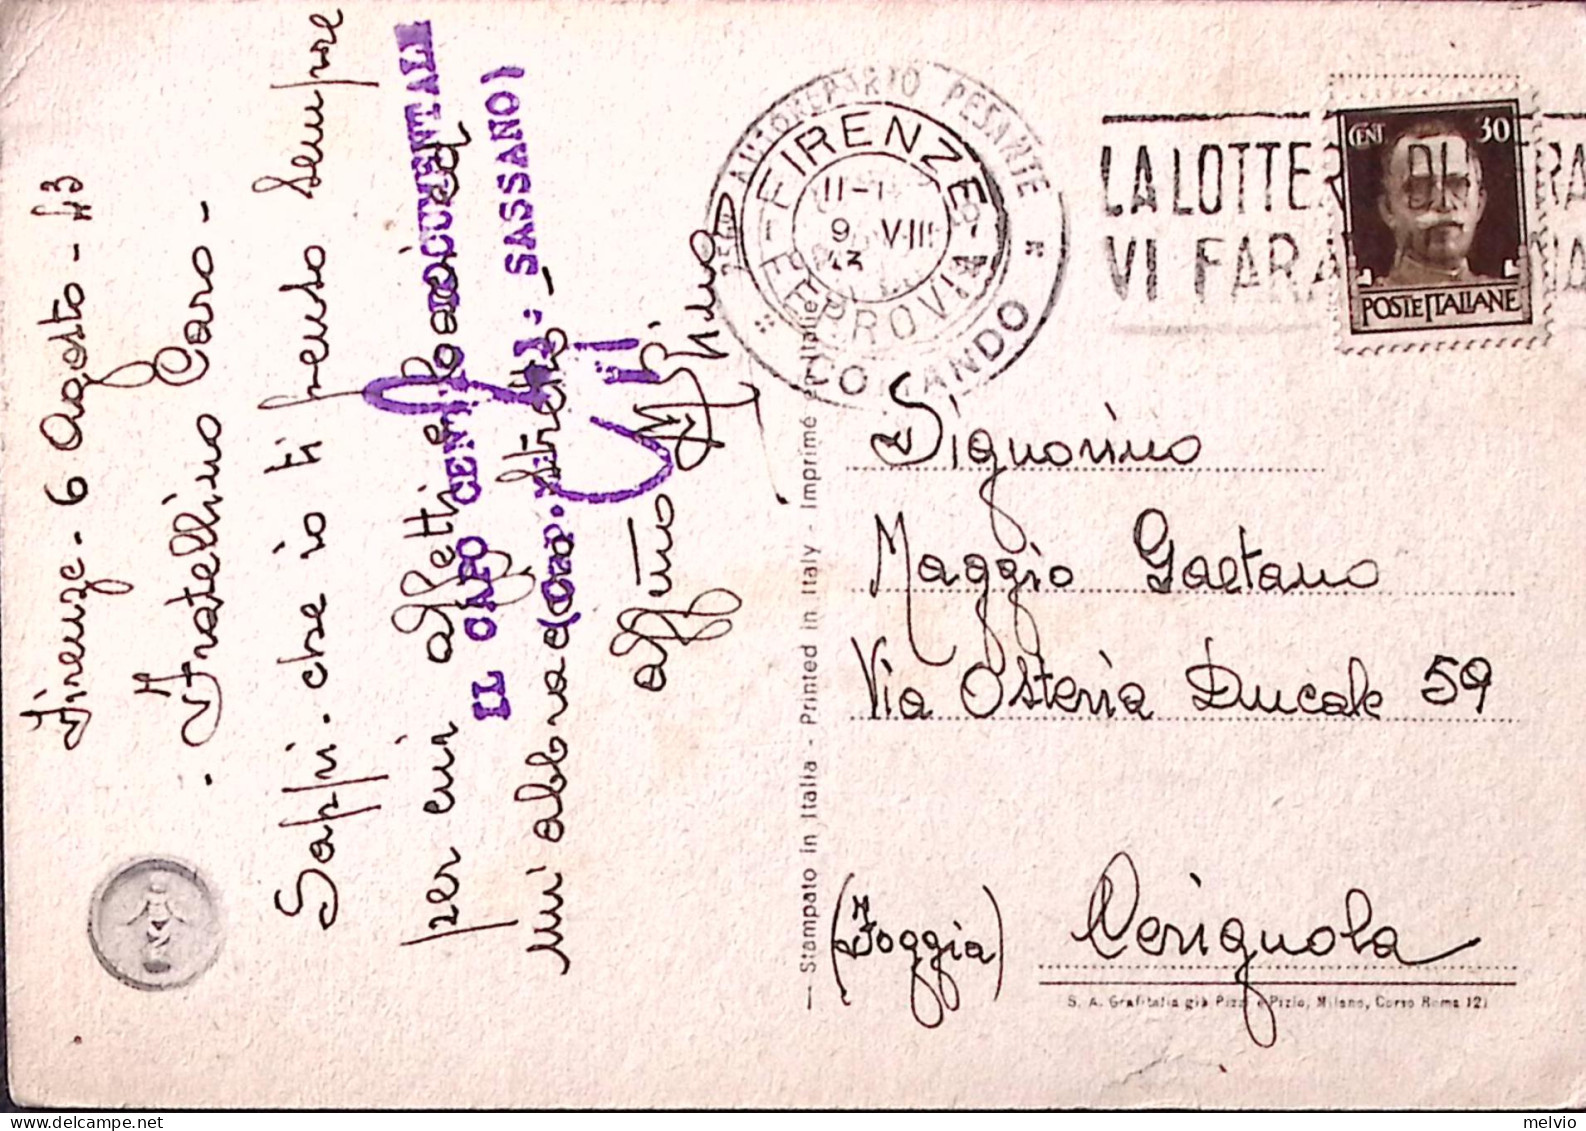 Firenze. 6 Agosto - 43
. Fratellino Caro -
Sappi. che io ti penso sempre
per cui affettuo
mi abbraccio stretto -
aff/mo
IL CAPO CENT
SASSANO)
25° AUTOREPARTO PESANTE
COMANDO
FIRENZE
FERROVIA
9 VIII
43
LA LOTTER DI
VI FARA
CENT 30
POSTE ITALIANE
— Stampato in Italia - Printed in Italy - Imprimé en Italie
Signorino
Maggio Gaetano
Via Osteria Ducale 59
(Foggia) Cerignola
S. A. Grafitalia già Pizzi e Pizio, Milano, Corso Roma 121
melvio
delcampe.net